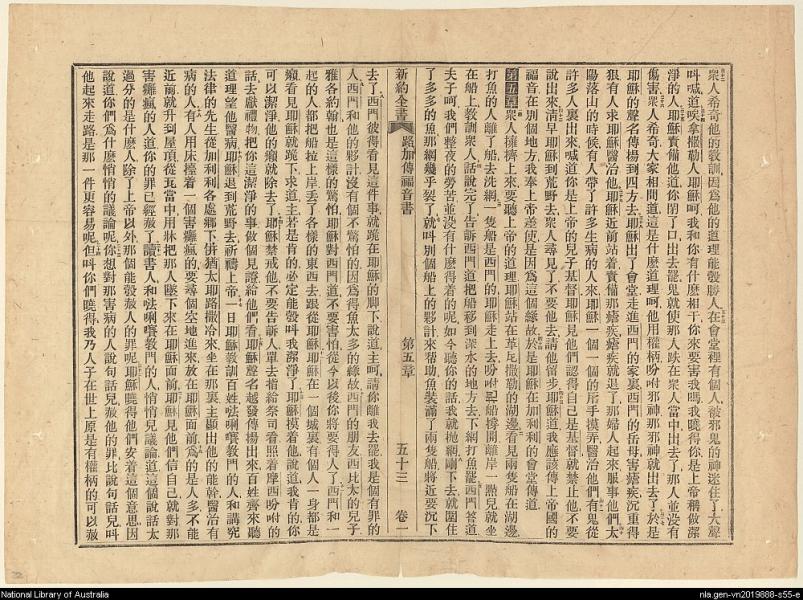 衆人希奇他的敎訓因爲他的道理能彀勝人在會堂裡有個人被邪鬼的神迷住了大聲
叫喊道唉拿撒勒人耶穌呵我和你有什麽相干你來要害我嗎我曉得你是上帝稱做潔
淨的人耶穌責備他道你閉了口出去罷鬼就使那人跌在衆人當中出去了那人並没有
傷害衆人希奇大家相問道這是什麽道理呵他用權柄吩咐邪神那邪神就出去了於是
耶穌的聲名傳揚到四方去耶穌出了會堂走進西門的家裏西門的岳母害瘧疾沉重得
狠有人求耶穌醫治他耶穌近前站着責備那瘧疾瘧疾就退了那婦人起來服事他們太
陽落山的時候有人帶了許多生病的人來耶穌一個一個的用手摸弄醫治他們有鬼從
許多人裏出來喊道你是上帝的兒子基督耶穌見他們認得自己是基督就禁止他不要
說出來淸早耶穌到荒野去衆人尋見了不要他去請他留步耶穌道我應該傳上帝國的
福音在別個地方我奉上帝差使是因爲這個緣故於是耶穌在加利利的會堂傳道
第五章衆人擁擠上來要聽上帝的道理耶穌站在革尼撒勒的湖邊看見兩隻船在湖邊
打魚的人離了船去洗網一隻船是西門的耶穌走上去吩咐把船撐開離岸一點兒就坐
在船上敎訓衆人話說完了告訴西門道把船移到深水的地方去下網打魚罷西門答道
夫子呵我們整夜的勞苦並没有什麽得着的呢如今聽你的話我就抛網剛下去就圍住
了多多的魚那網幾乎裂了就叫別個船上的夥計來幇助魚裝滿了兩隻船將近要沉下
新約全書 路加傳福音書 第五章 五十三 卷一
去了西門彼得看見這件事就跪在耶穌的脚下說道主呵請你離我去罷我是個有罪的
人西門和他的夥計没有個不驚怕的因爲得魚太多的緣故西門的朋友西比太的兒子
雅各約翰也是這樣的驚怕耶穌對西門道不要害怕從今以後你將要得人了西門和一
起的人都把船拉上岸丢了各樣的東西去跟從耶穌耶穌在一個城裏有個人一身都是
癩看見耶穌就跪下求道主若是肯的必定能彀叫我潔淨了耶穌摸着他說道我肯的你
可以潔淨他的癩就除去了耶穌禁戒他不要告訴人單去指給祭司看照着摩西吩咐的
話去獻禮物把你這潔淨的事做個見證給他們看耶穌聲名越發傳揚出來百姓齊來聽
道理望他醫病耶穌退到荒野去祈禱上帝一日耶穌敎訓百姓𠵽唎㘔敎門的人和講究
法律的先生從加利利各處鄉下併猶太耶路撒冷來坐在那裏主顯出他的能幹醫治有
病的人有人用床擡着一個害癱瘋的要尋個空地進來放在耶穌面前爲的是人多不能
近前就升到屋頂從瓦當中用牀把那人墜下來在耶穌面前耶穌見他們信自己就對那
害癱瘋的人道你的罪已經赦了讀書人和𠵽唎㘔敎門的人悄悄兒議論道這個說話太
過分的是什麽人除了上帝以外那個能彀赦人的罪呢耶穌曉得他們安着這個意思因
說道你們爲什麽悄悄的議論呢你想對那害病的人說句話兒赦他的罪比說句話兒叫
他起來走路是那一件更容易呢但叫你們曉得我乃人子在世上原是有權柄的可以赦
National Library of Australia
nla.gen-vn2019888-s55-e